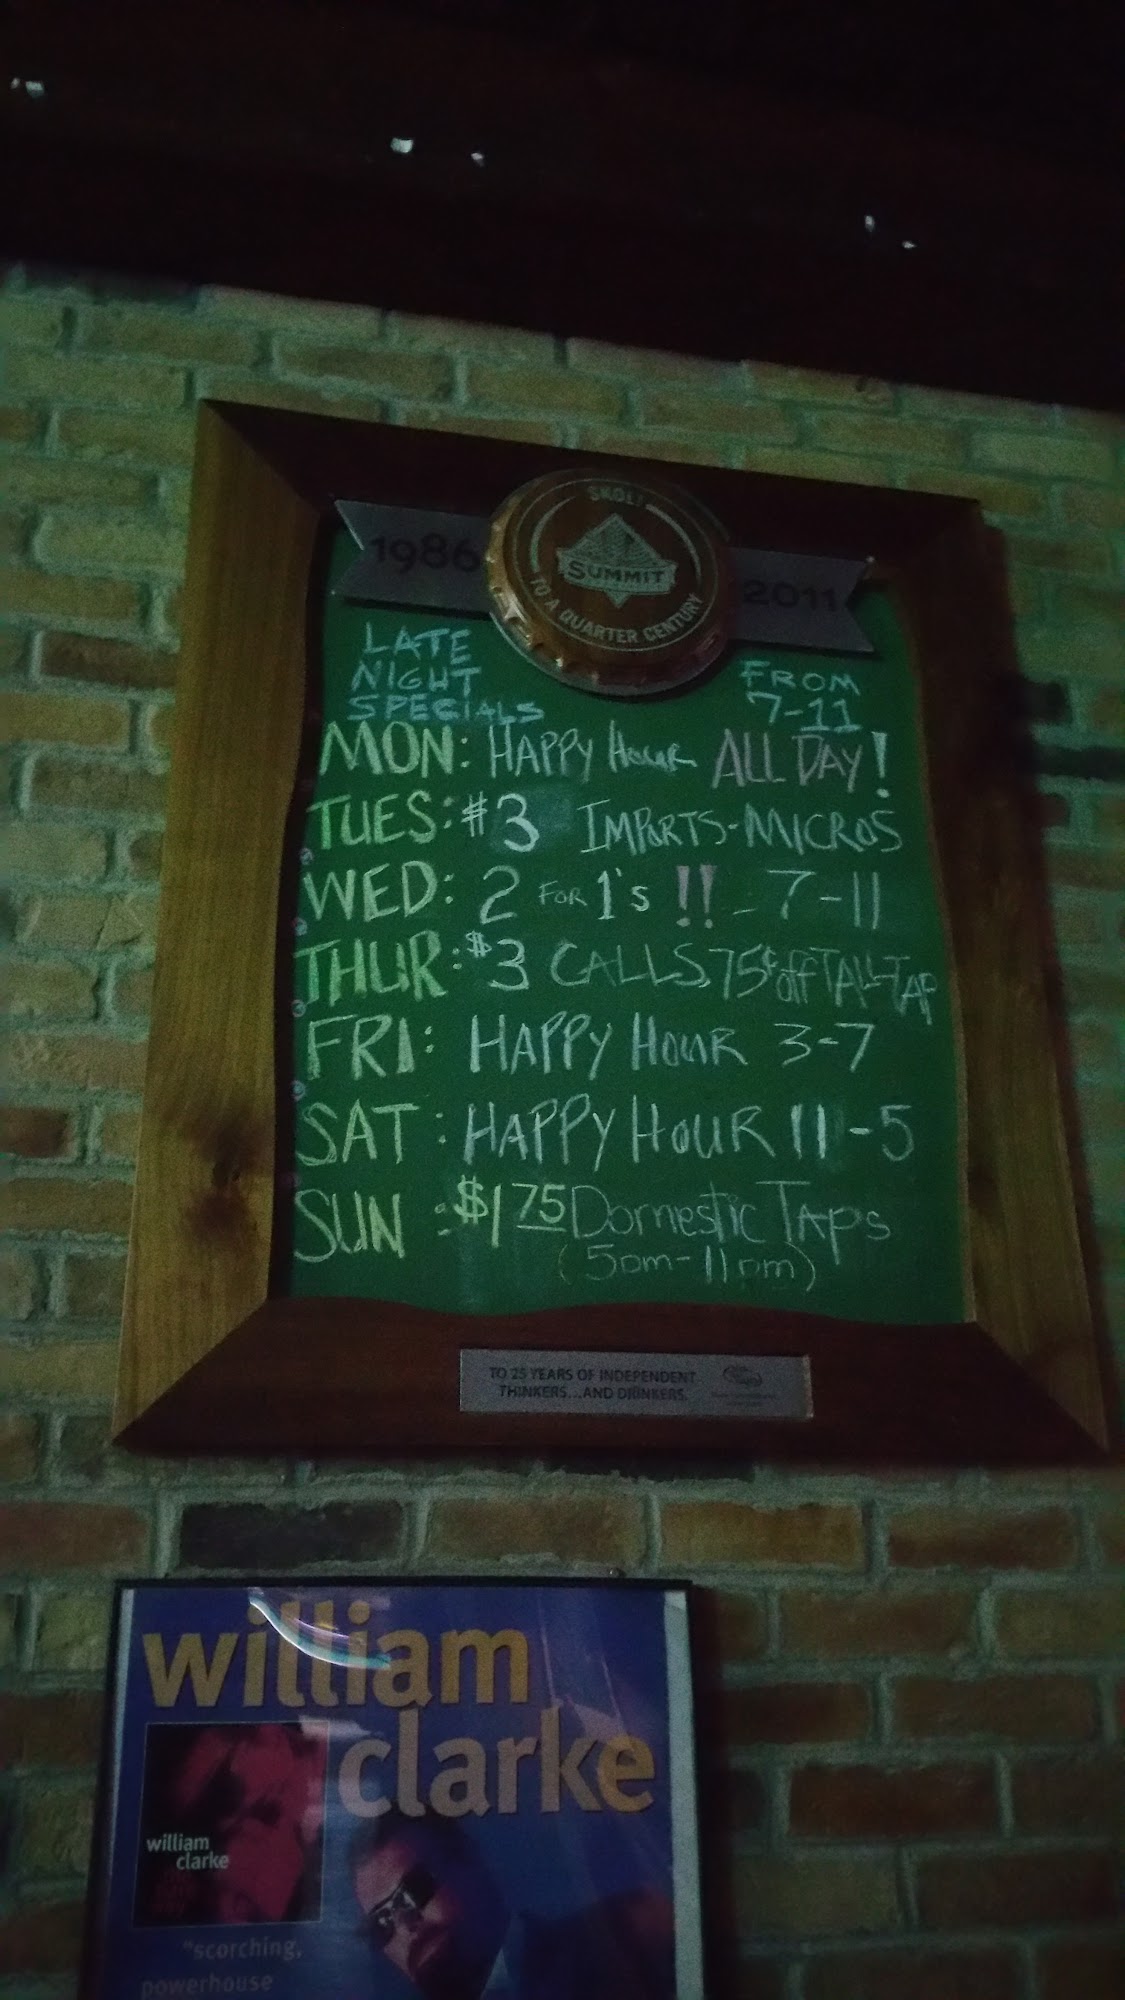 SKOL!
1986
SUMMIT
2011
TO A QUARTER CENTURY
LATE
NIGHT
SPECIALS
FROM
7-11
MON: HAPPY HOUR ALL DAY!
TUES: #3 IMPORTS-MICROS
WED: 2 FOR 1's !! - 7-11
THUR: $3 CALLS, 75¢ off TALL TAP
FRI: HAPPY HOUR 3-7
SAT: HAPPY HOUR 11-5
SUN: $1 75 Domestic TAPs
(5pm-11pm)
TO 25 YEARS OF INDEPENDENT
THINKERS...AND DRINKERS.
william
clarke
william
clarke
"scorching,
powerhouse